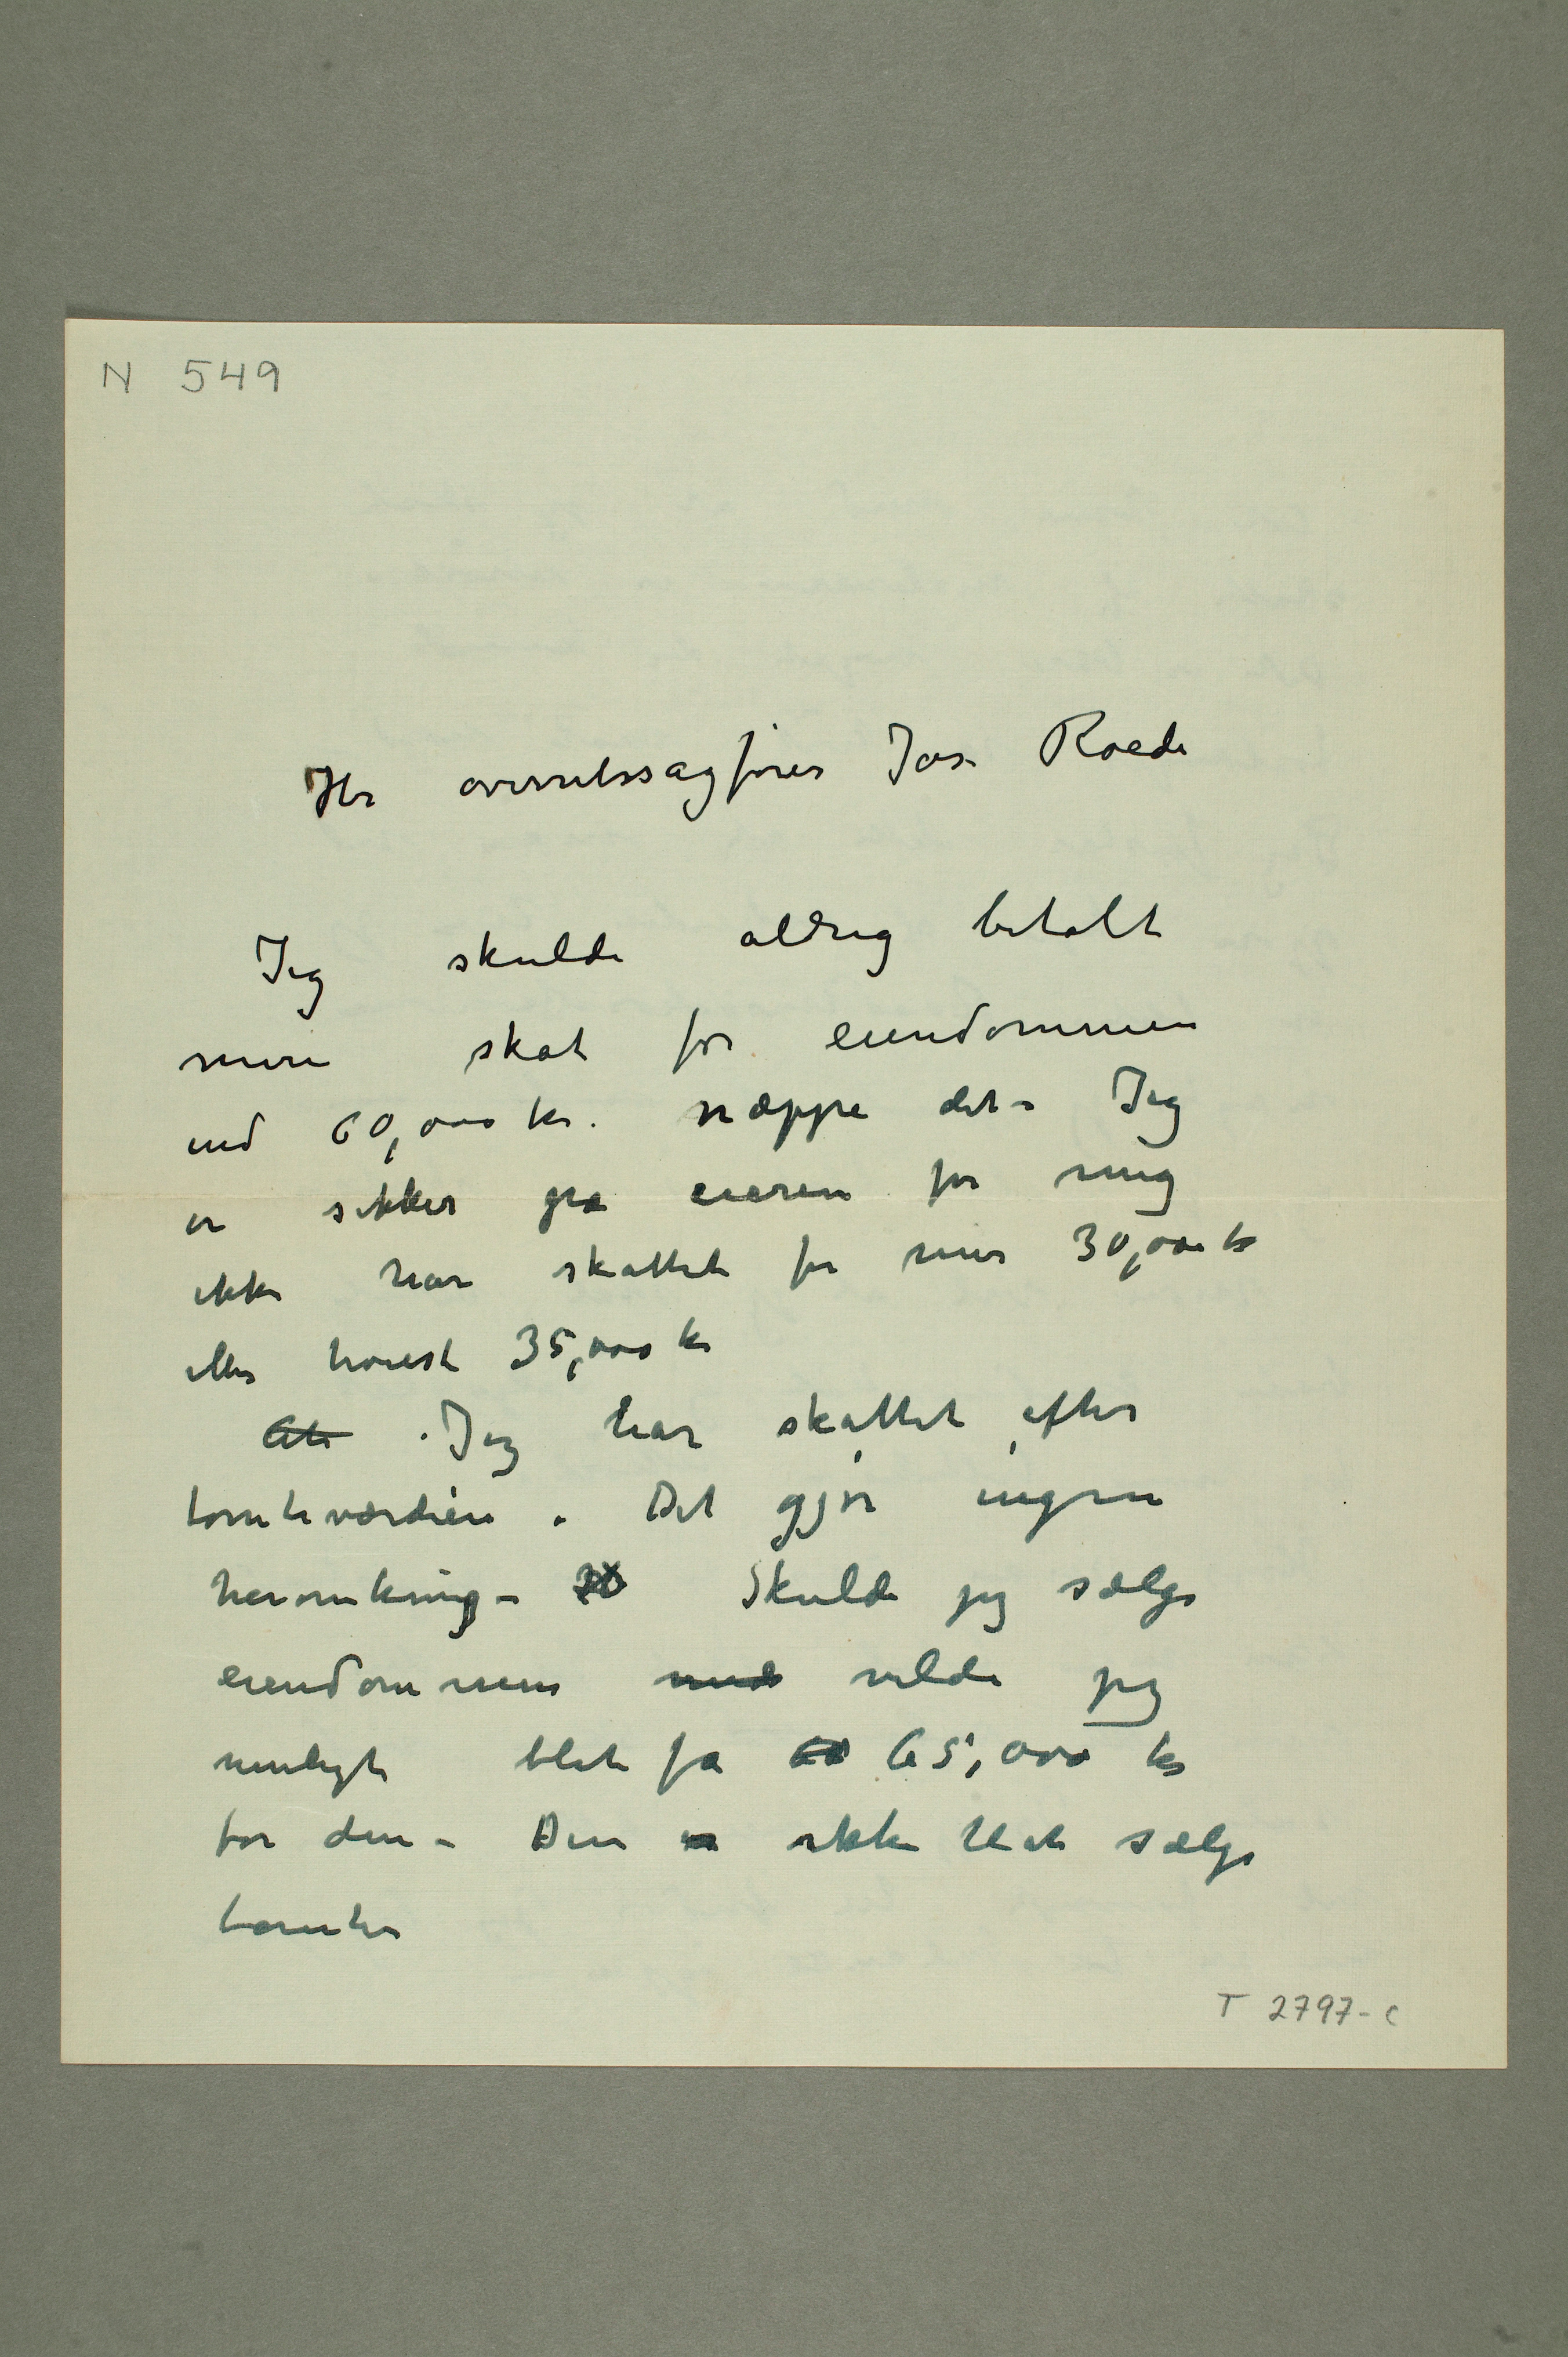 N 549
Hr overretssagfører Jos. Roede
Jeg skulde aldrig betalt
mere skat for eiendommen
end 60,000 kr. næppe det – Jeg
er sikker på eieren for mig
ikke har skattet for mer 30,000 kr
eller høiest 35,000 kr
Jeg har skattet efter
tomteværdien. Det gjør ingen
heromkring –  Skulde jeg sælge
eiendommen vilde jeg
muligt blot få 65,000 kr
for den – Den ikke let sælge
tomter
T 2797-c